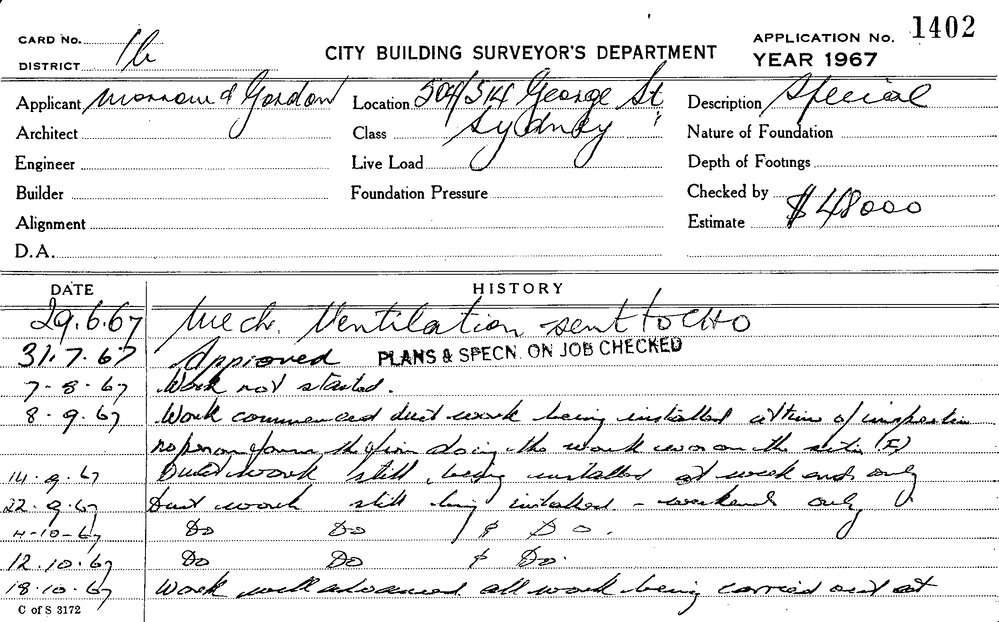 CARD No. 16
DISTRICT
CITY BUILDING SURVEYOR'S DEPARTMENT
APPLICATION No. 1402
YEAR 1967
Applicant Morrow & Gordon Location 504/514 George St Description Special
Architect Class Sydney Nature of Foundation
Engineer Live Load Depth of Footings
Builder Foundation Pressure Checked by
Alignment Estimate $48000
D.A.
DATE HISTORY
29.6.67 Mech. Ventilation sent to CHO
31.7.67 Approved PLANS & SPECN. ON JOB CHECKED
7-8-67 Work not started.
8.9.67 Work commenced duct work being installed at time of inspection
no person from the firm doing the work was on the site
14.9.67 Duct work still being installed at week ends only
22.9.67 Duct work still being installed - weekends only
4-10-67 Do Do & Do.
12.10.67 Do Do & Do.
18.10.67 Work well advanced all work being carried out at
C of S 3172